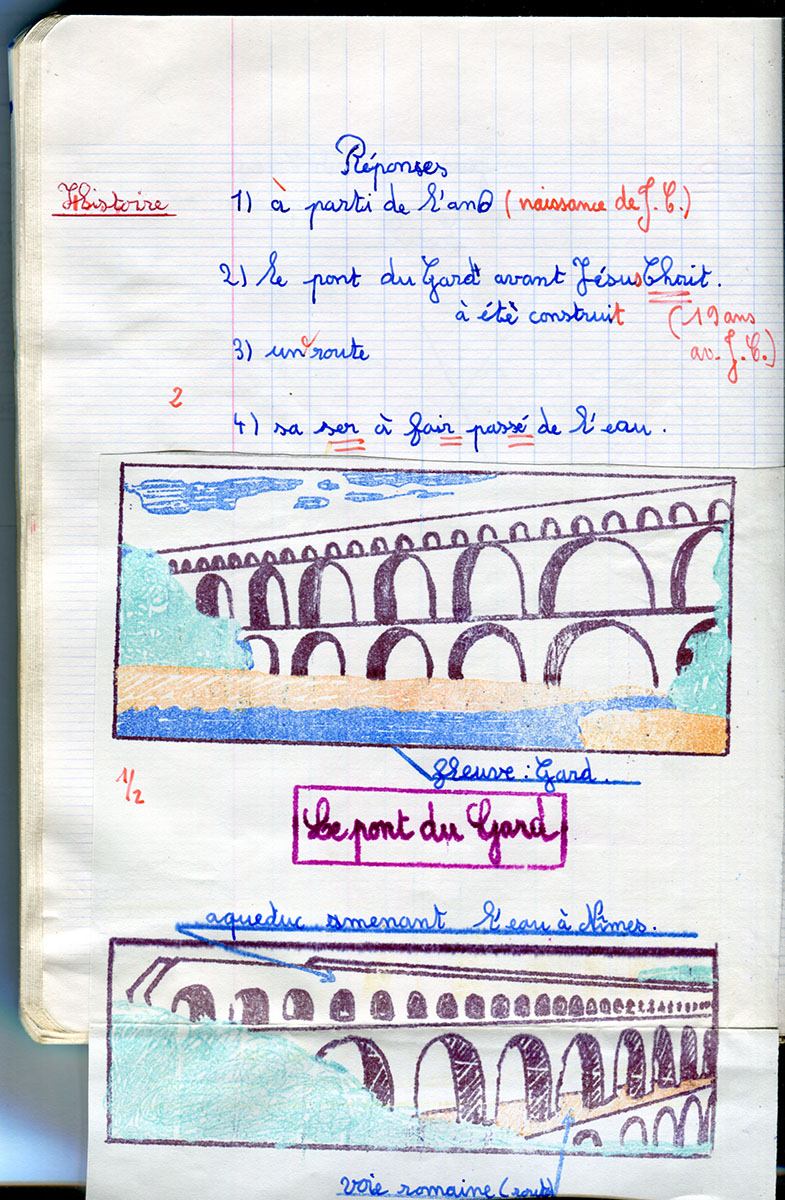 Réponses
Histoire
1) à parti de l'an 0 (naissance de J.C.)
2) le pont du Gard avant Jésus Chrit.
à été construit (19 ans
av. J.C.)
3) une route
2
4) sa ser à fair passé de l'eau.
fleuve : Gard.
1/2
Le pont du Gard
aqueduc amenant l'eau à Nîmes.
voie romaine (route)